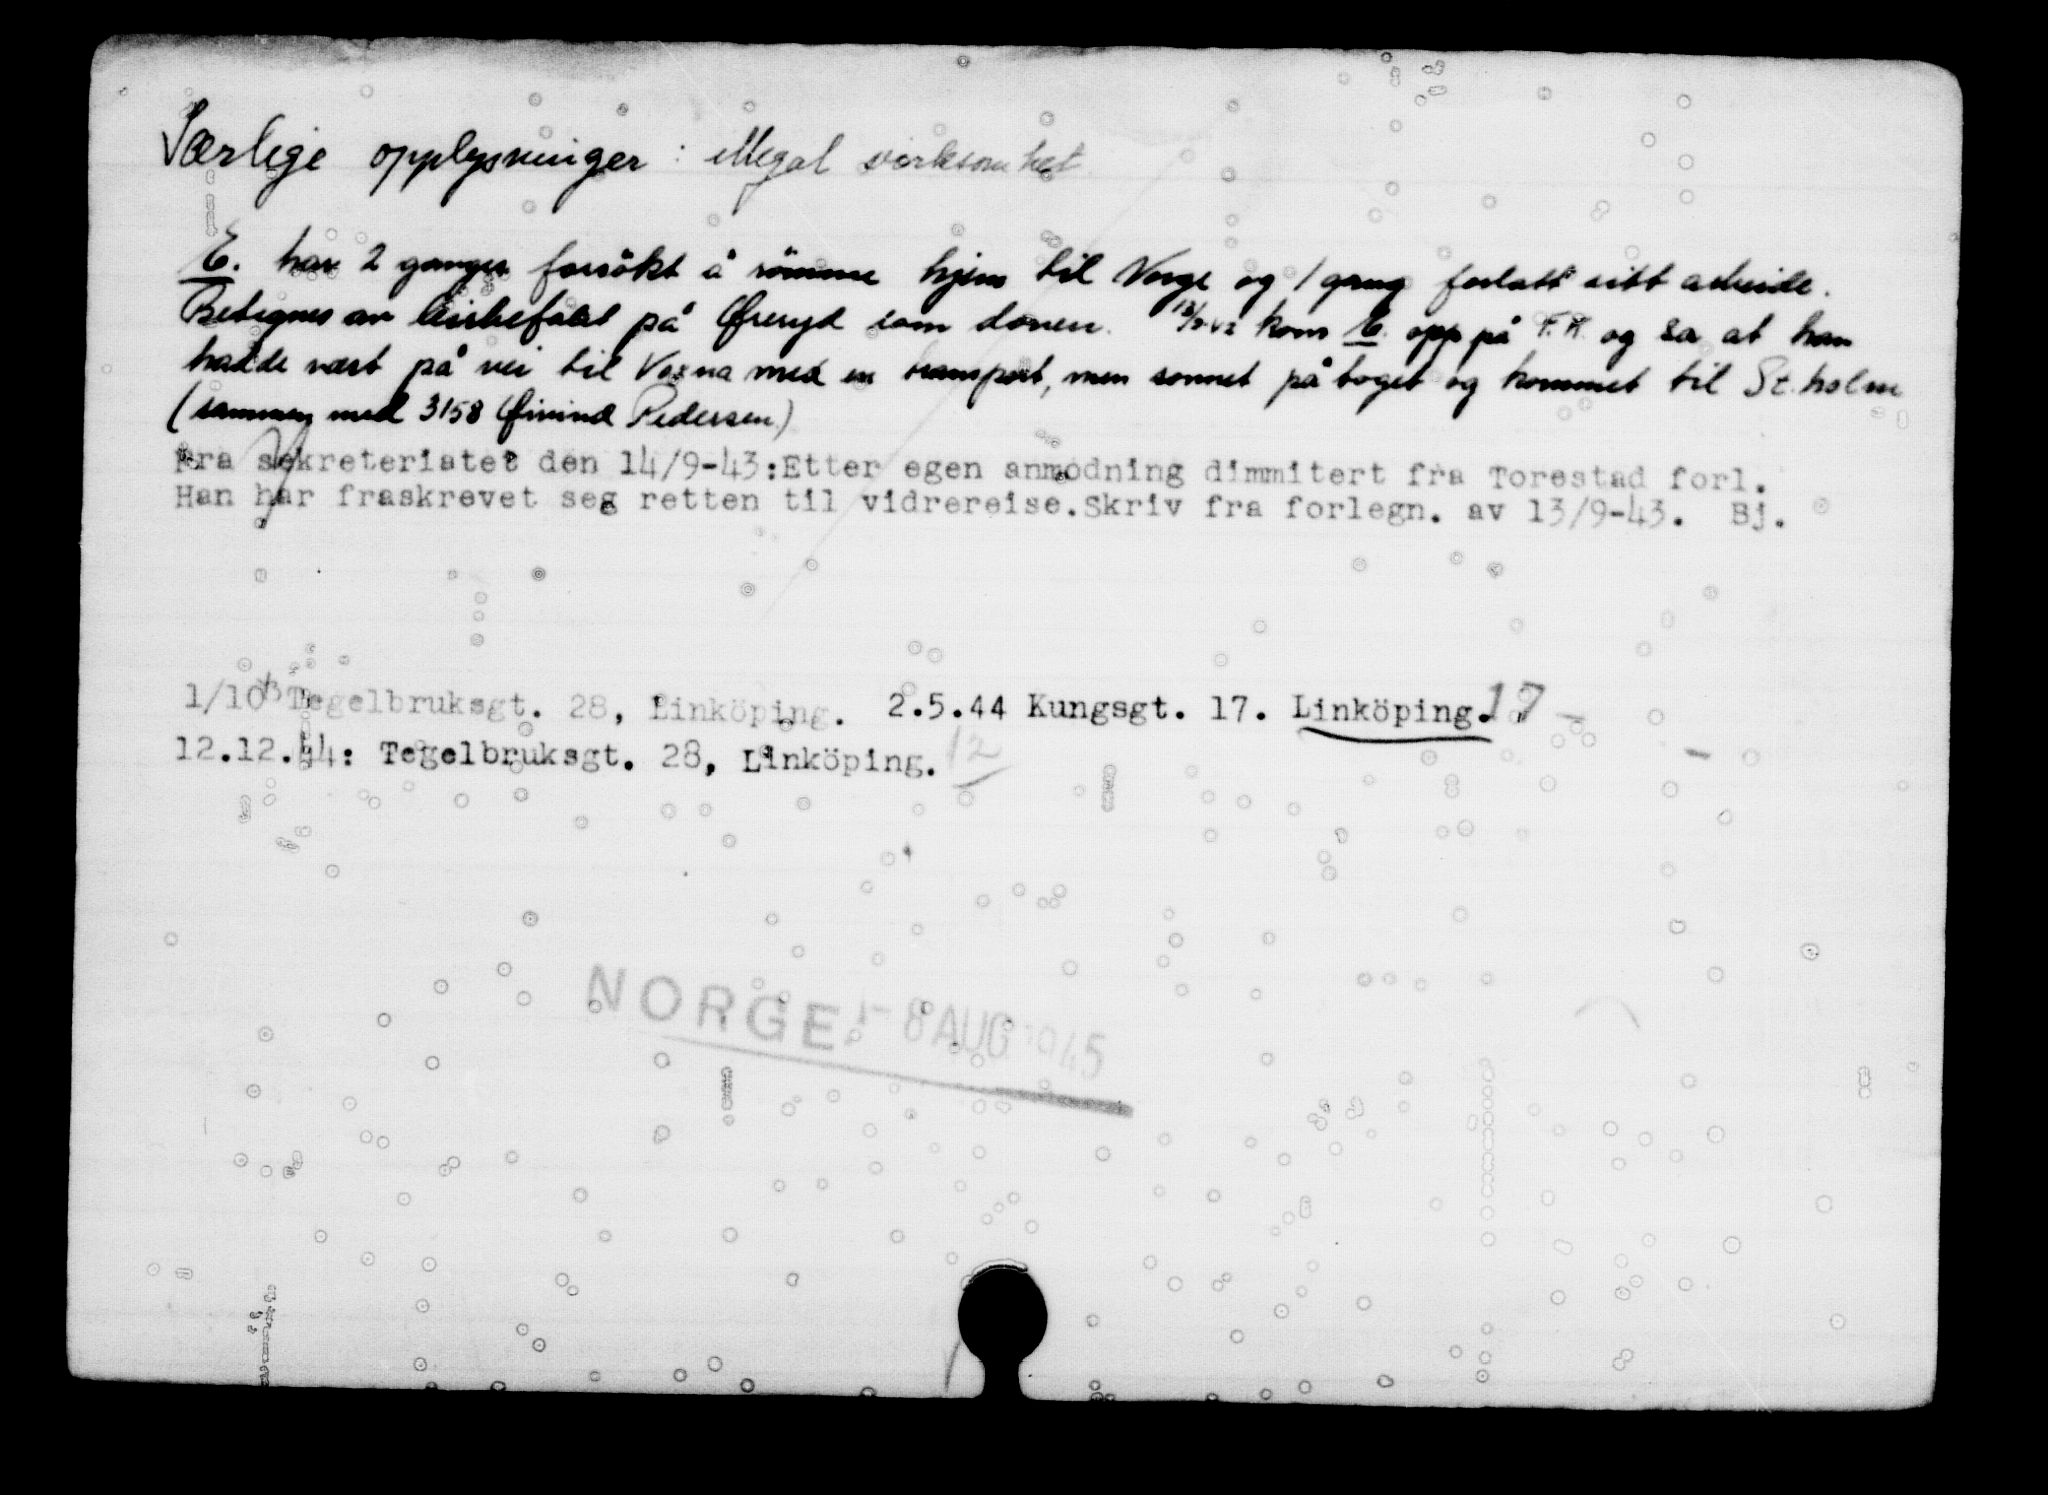 Særlige opplysninger : illegal virksomhet
E. har 2 ganger forsökt å römme hjem til Norge og 1 gang forlatt sitt arbeide.
Betegnes av på Øreryd som doven. kom E. opp på F.K. og sa at han
hadde vært på vei til Voxna med en transport, men sovnet på toget og kommet til St.holm
(sammen med 3158 Øivind Pedersen)
Fra sekreteriatet den 14/9-43:Etter egen anmodning dimmitert fra Torestad forl.
Han har fraskrevet seg retten til vidrereise.Skriv fra forlegn. av 13/9-43. Bj.
1/10 Tegelbruksgt. 28, Linköping. 2.5.44 Kungsgt. 17. Linköping. 17
12.12.44: Tegelbruksgt. 28, Linköping. 12
NORGE - 8 AUG 1945